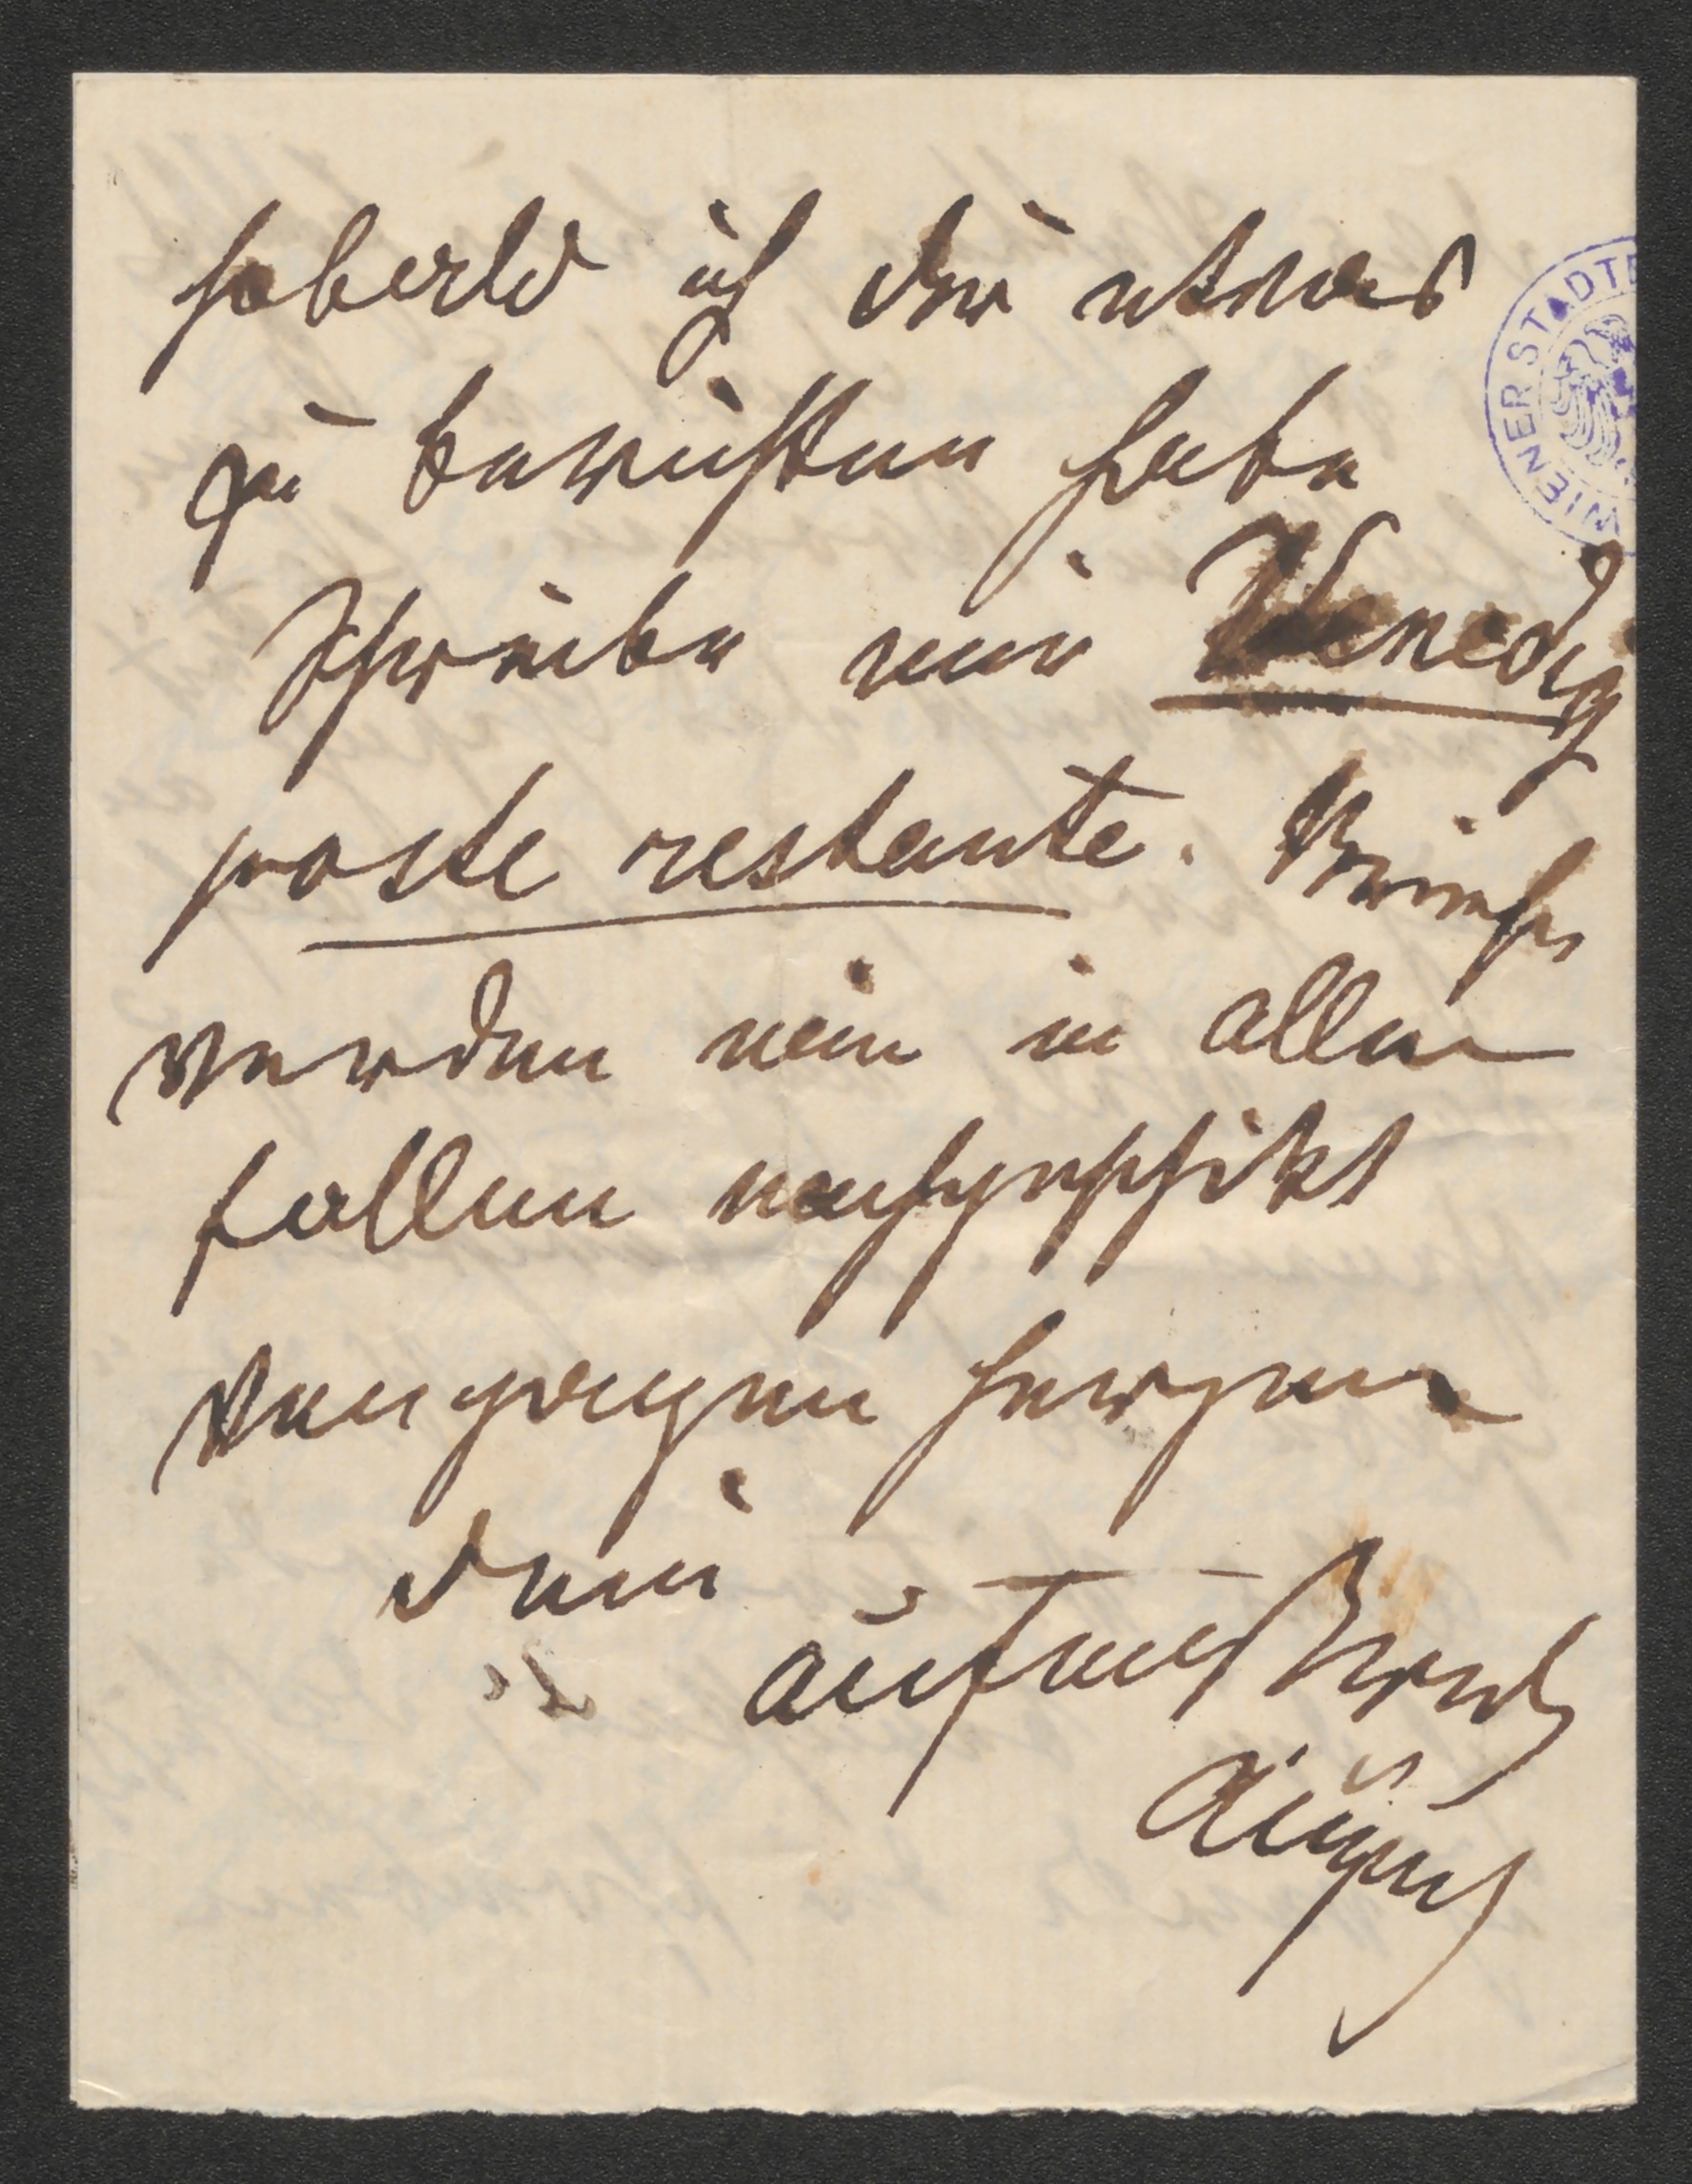 sobald ich dir etwas
zu berichten habe
Schreibe mir Venedig
poste restante. Briefe
werden mir in allen
fallen nachgeschikt
Von ganzen Herzen
dein
aufrichtig
August
WIENER STADTB